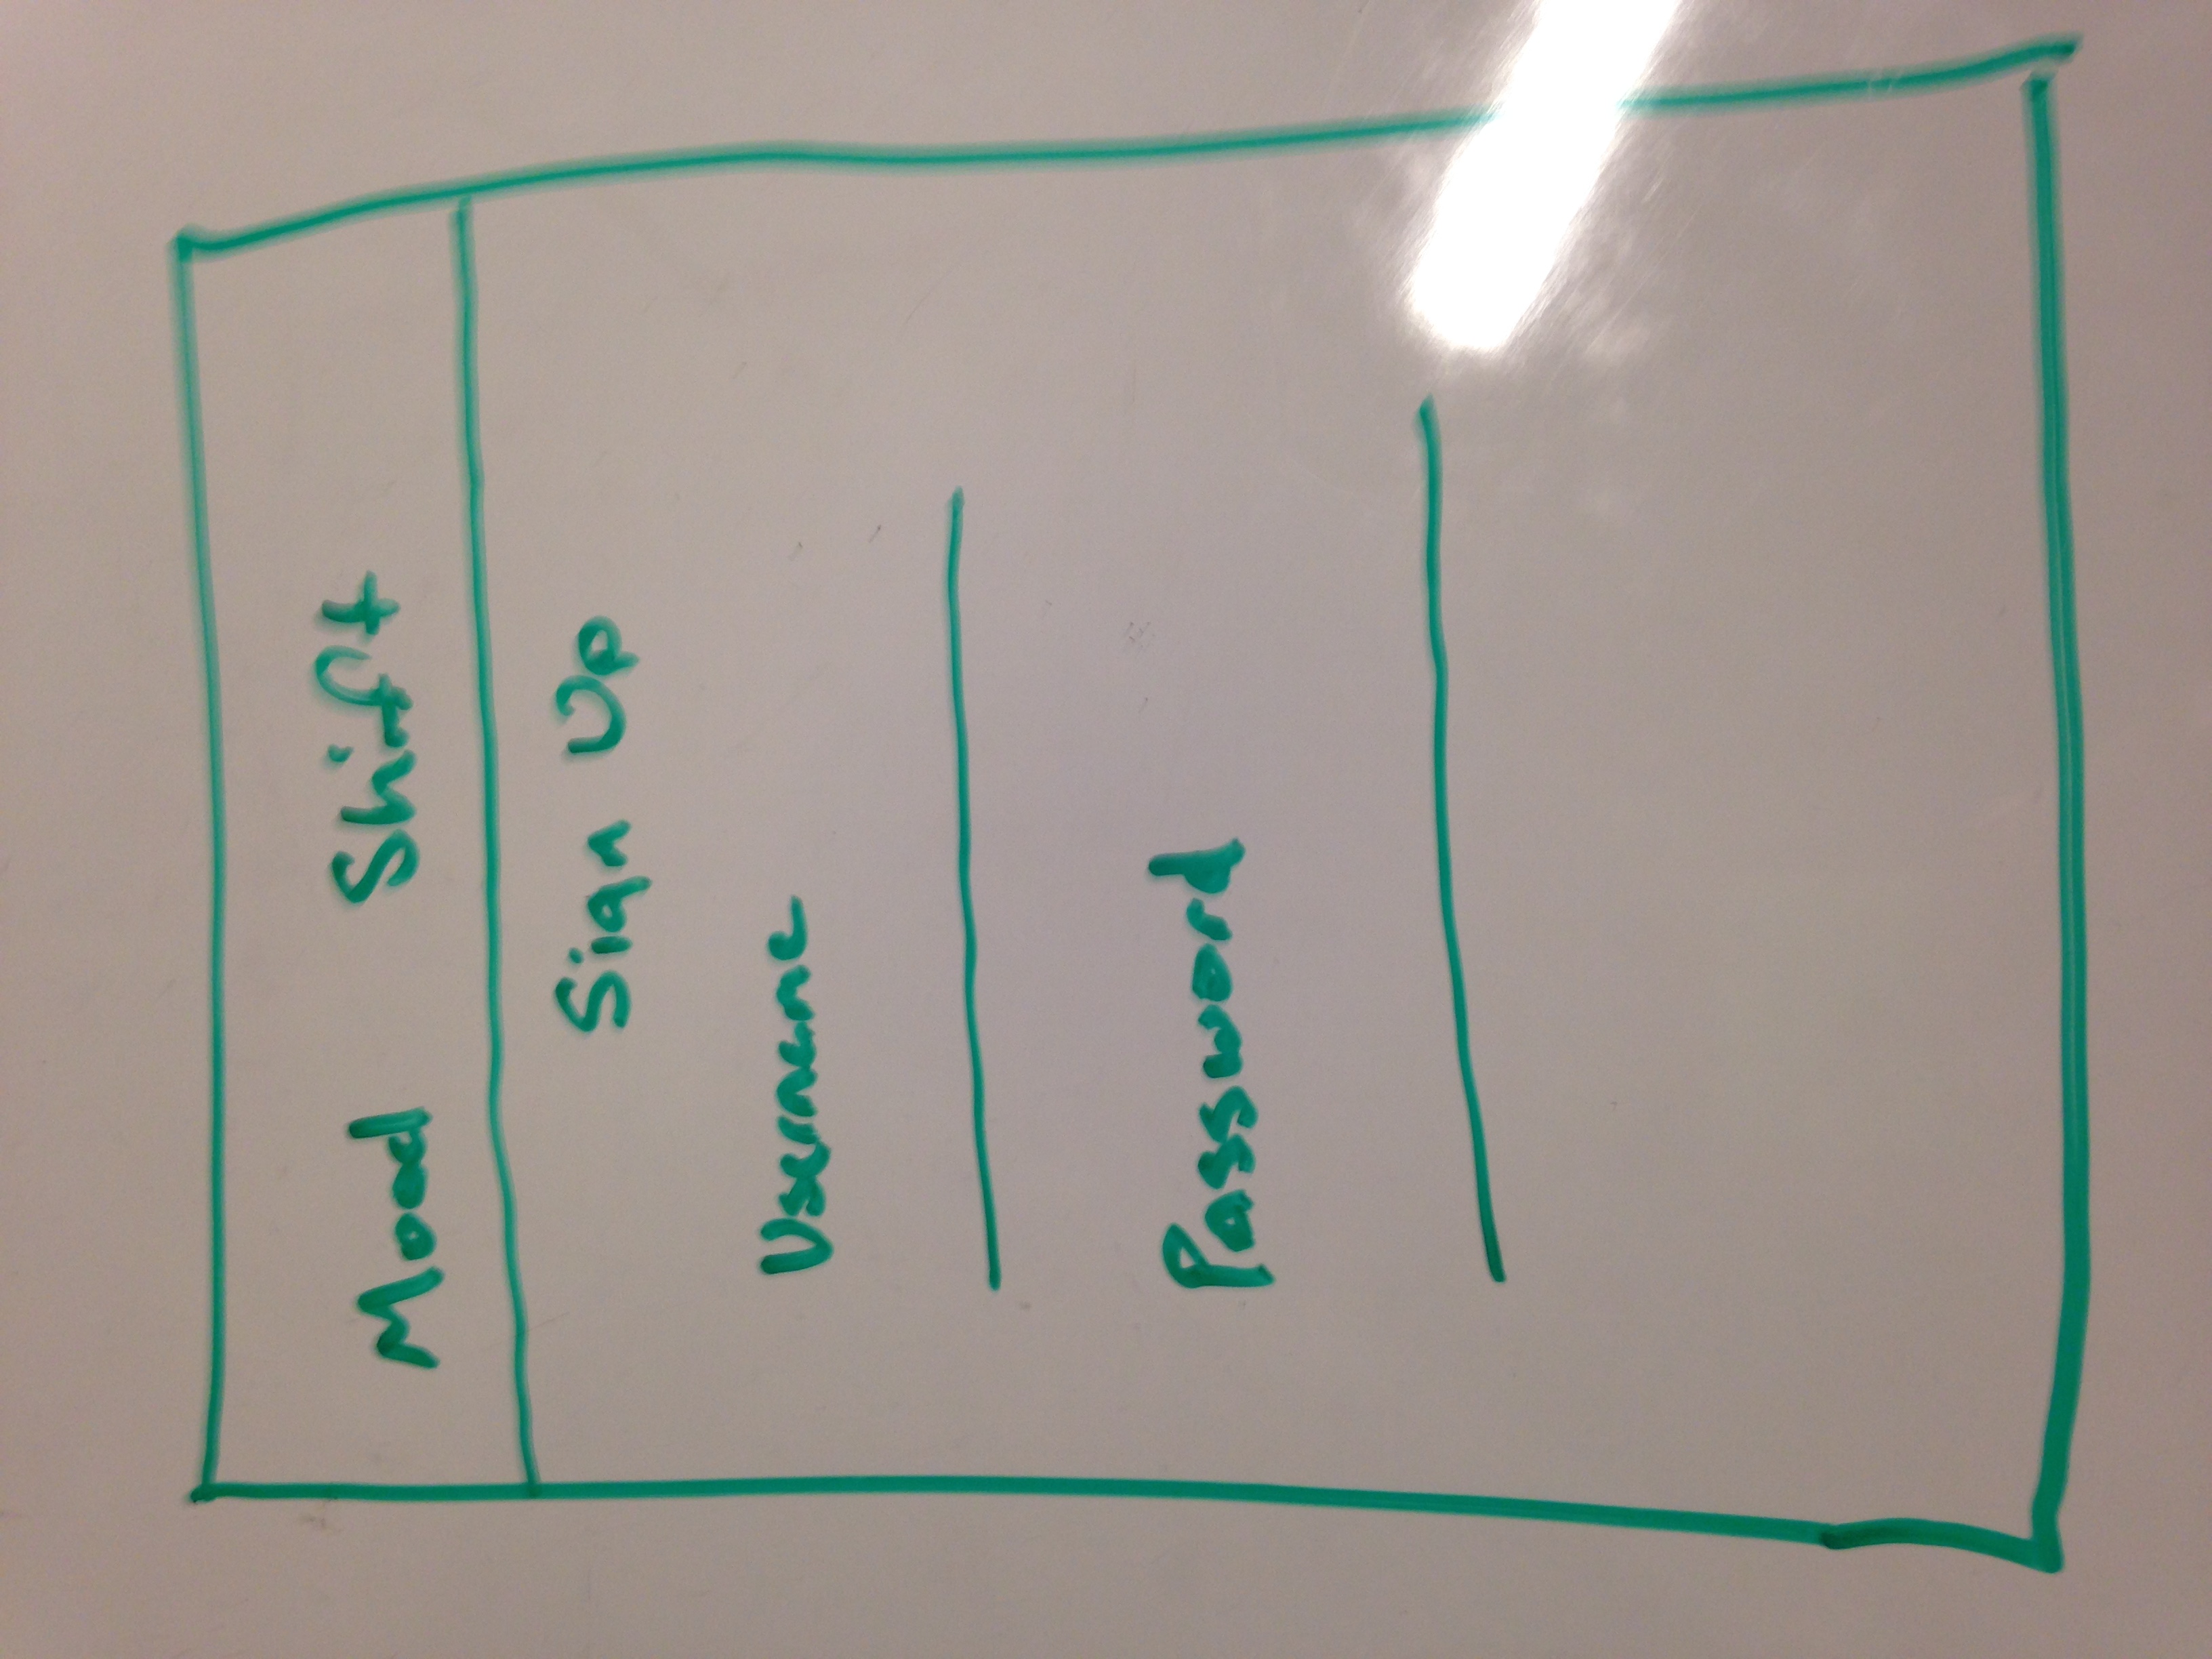 Mood Shift
Sign Up
Username
Password